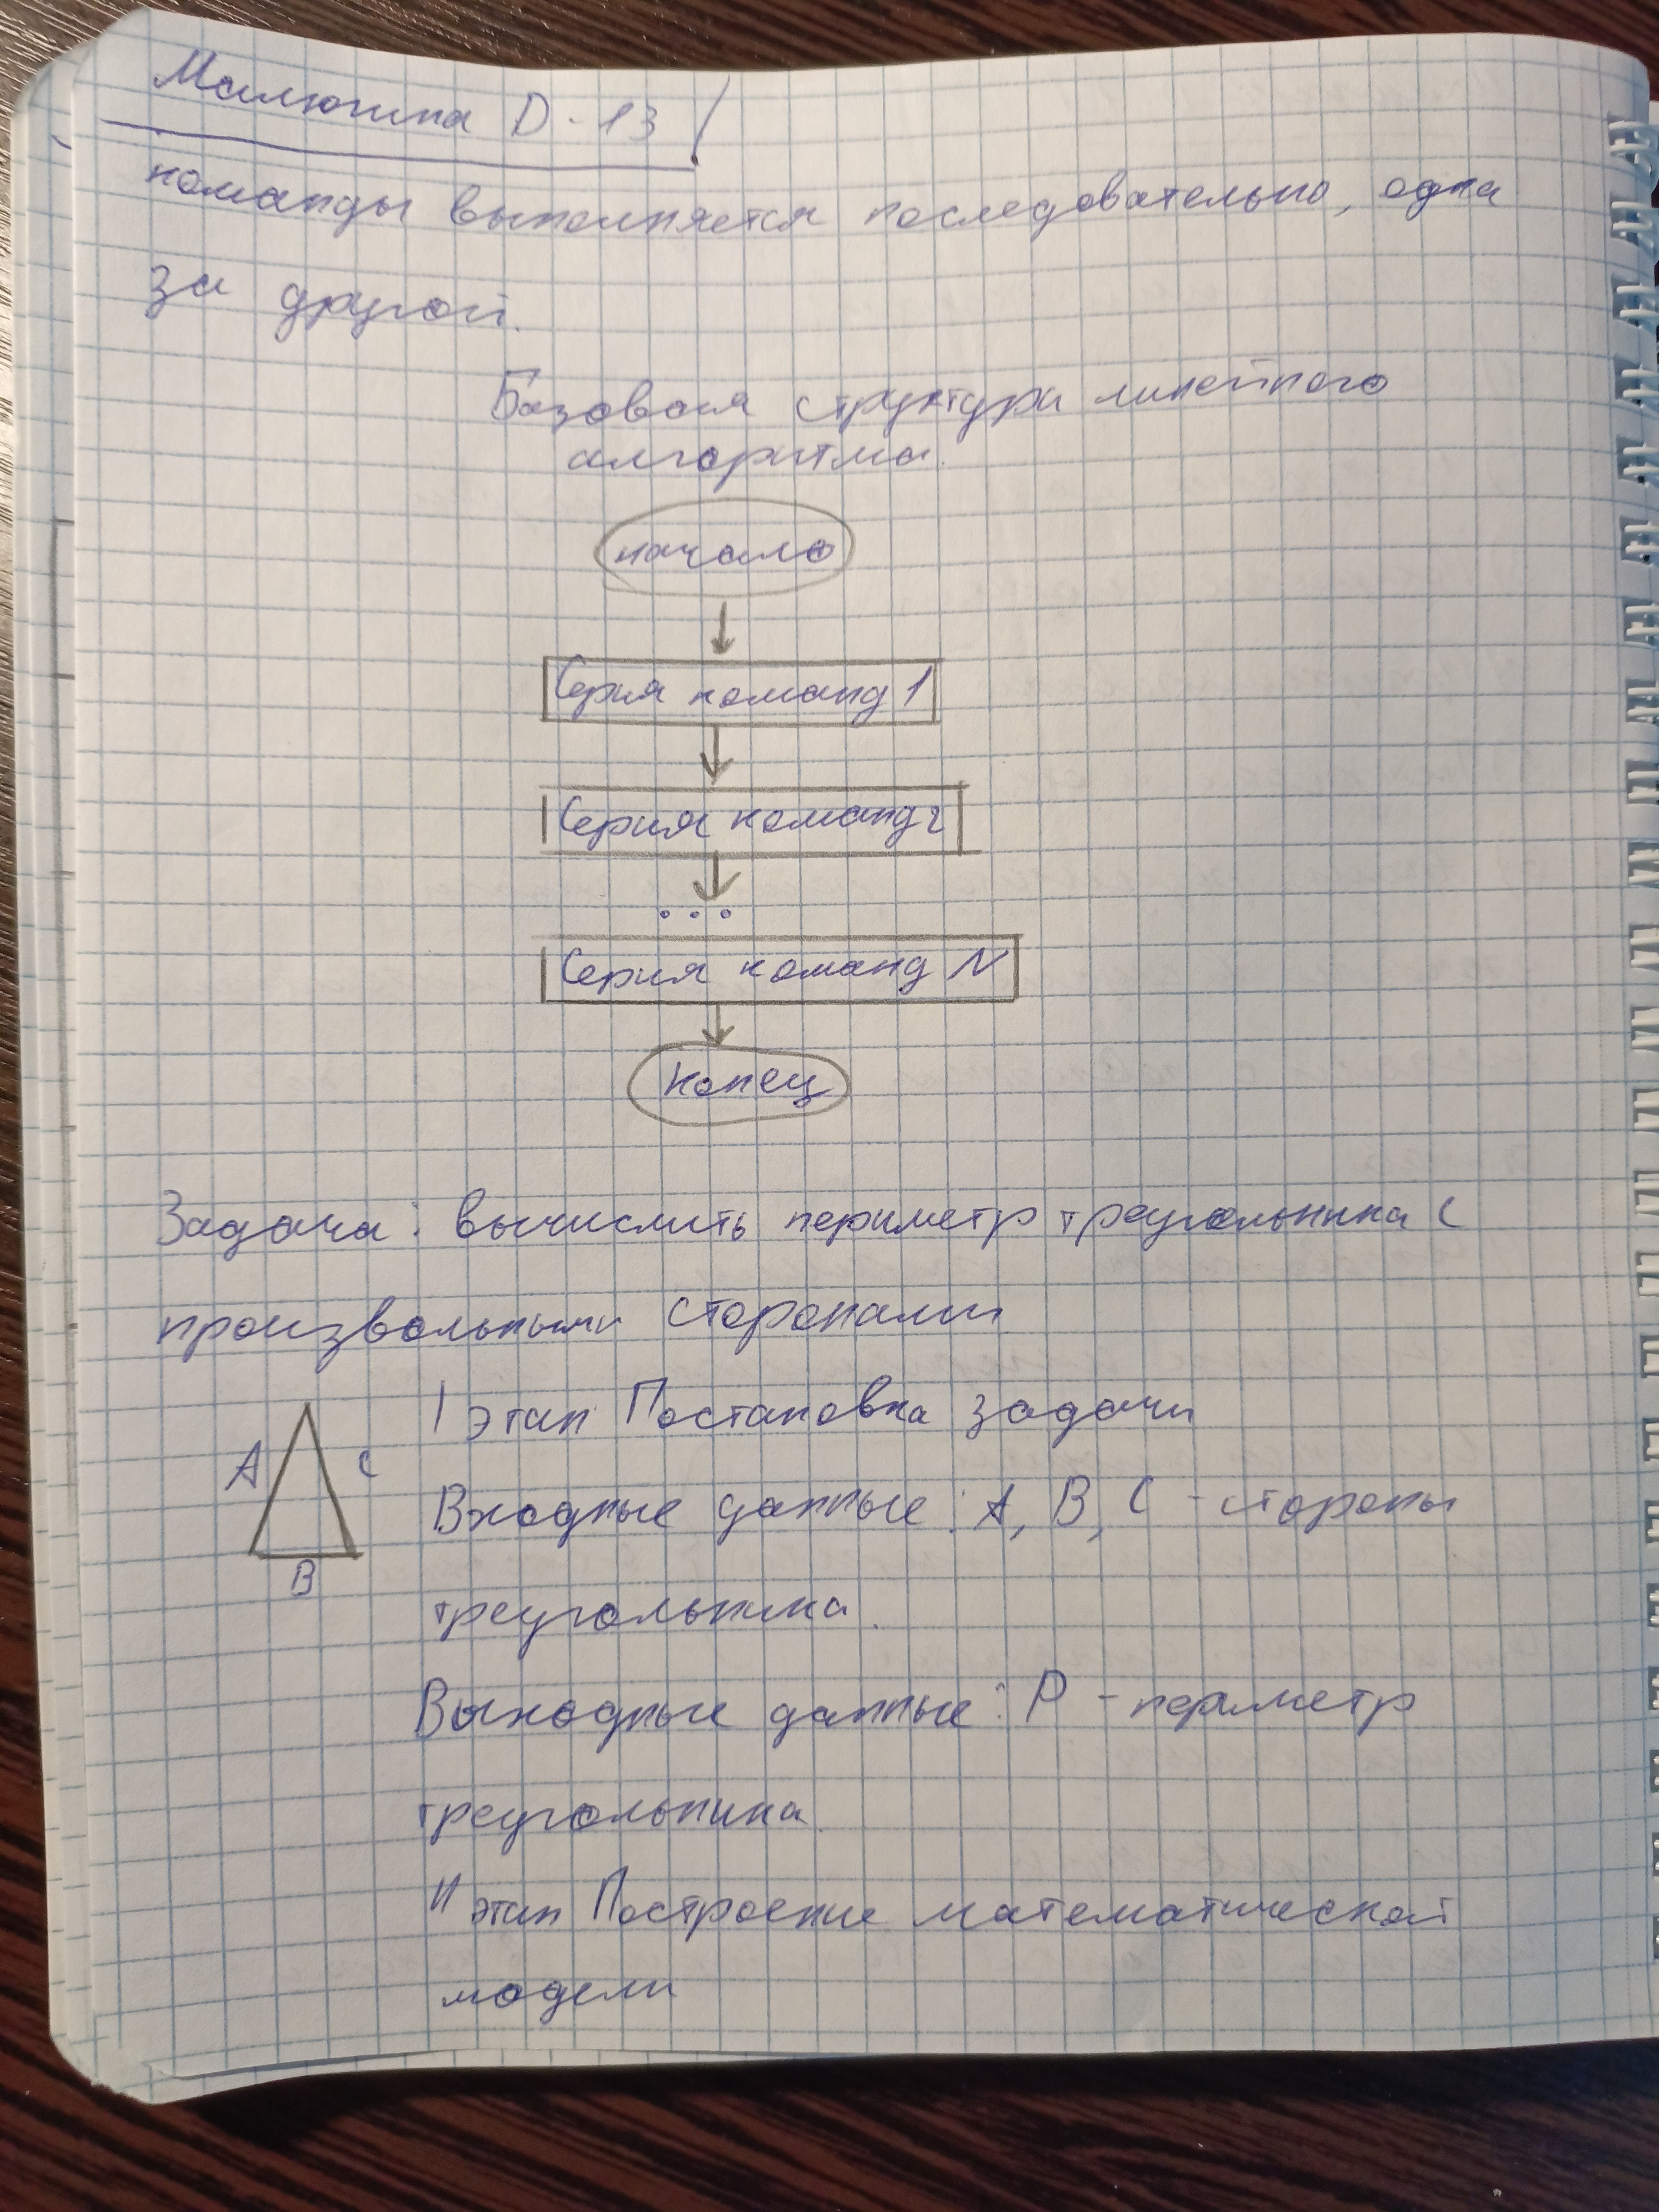 Малютина D-13
команды выполняется последовательно, одна
за другой.
Базовая структура линейного
алгоритма.
начало
Серия команд 1
Серия команд 2
...
Серия команд N
конец
Задача: вычислить периметр треугольника с
произвольными сторонами
I этап Постановка задачи
A
C
B
Входные данные: A, B, C - стороны
треугольника.
Выходные данные: P - периметр
треугольника.
II этап Построение математической
модели